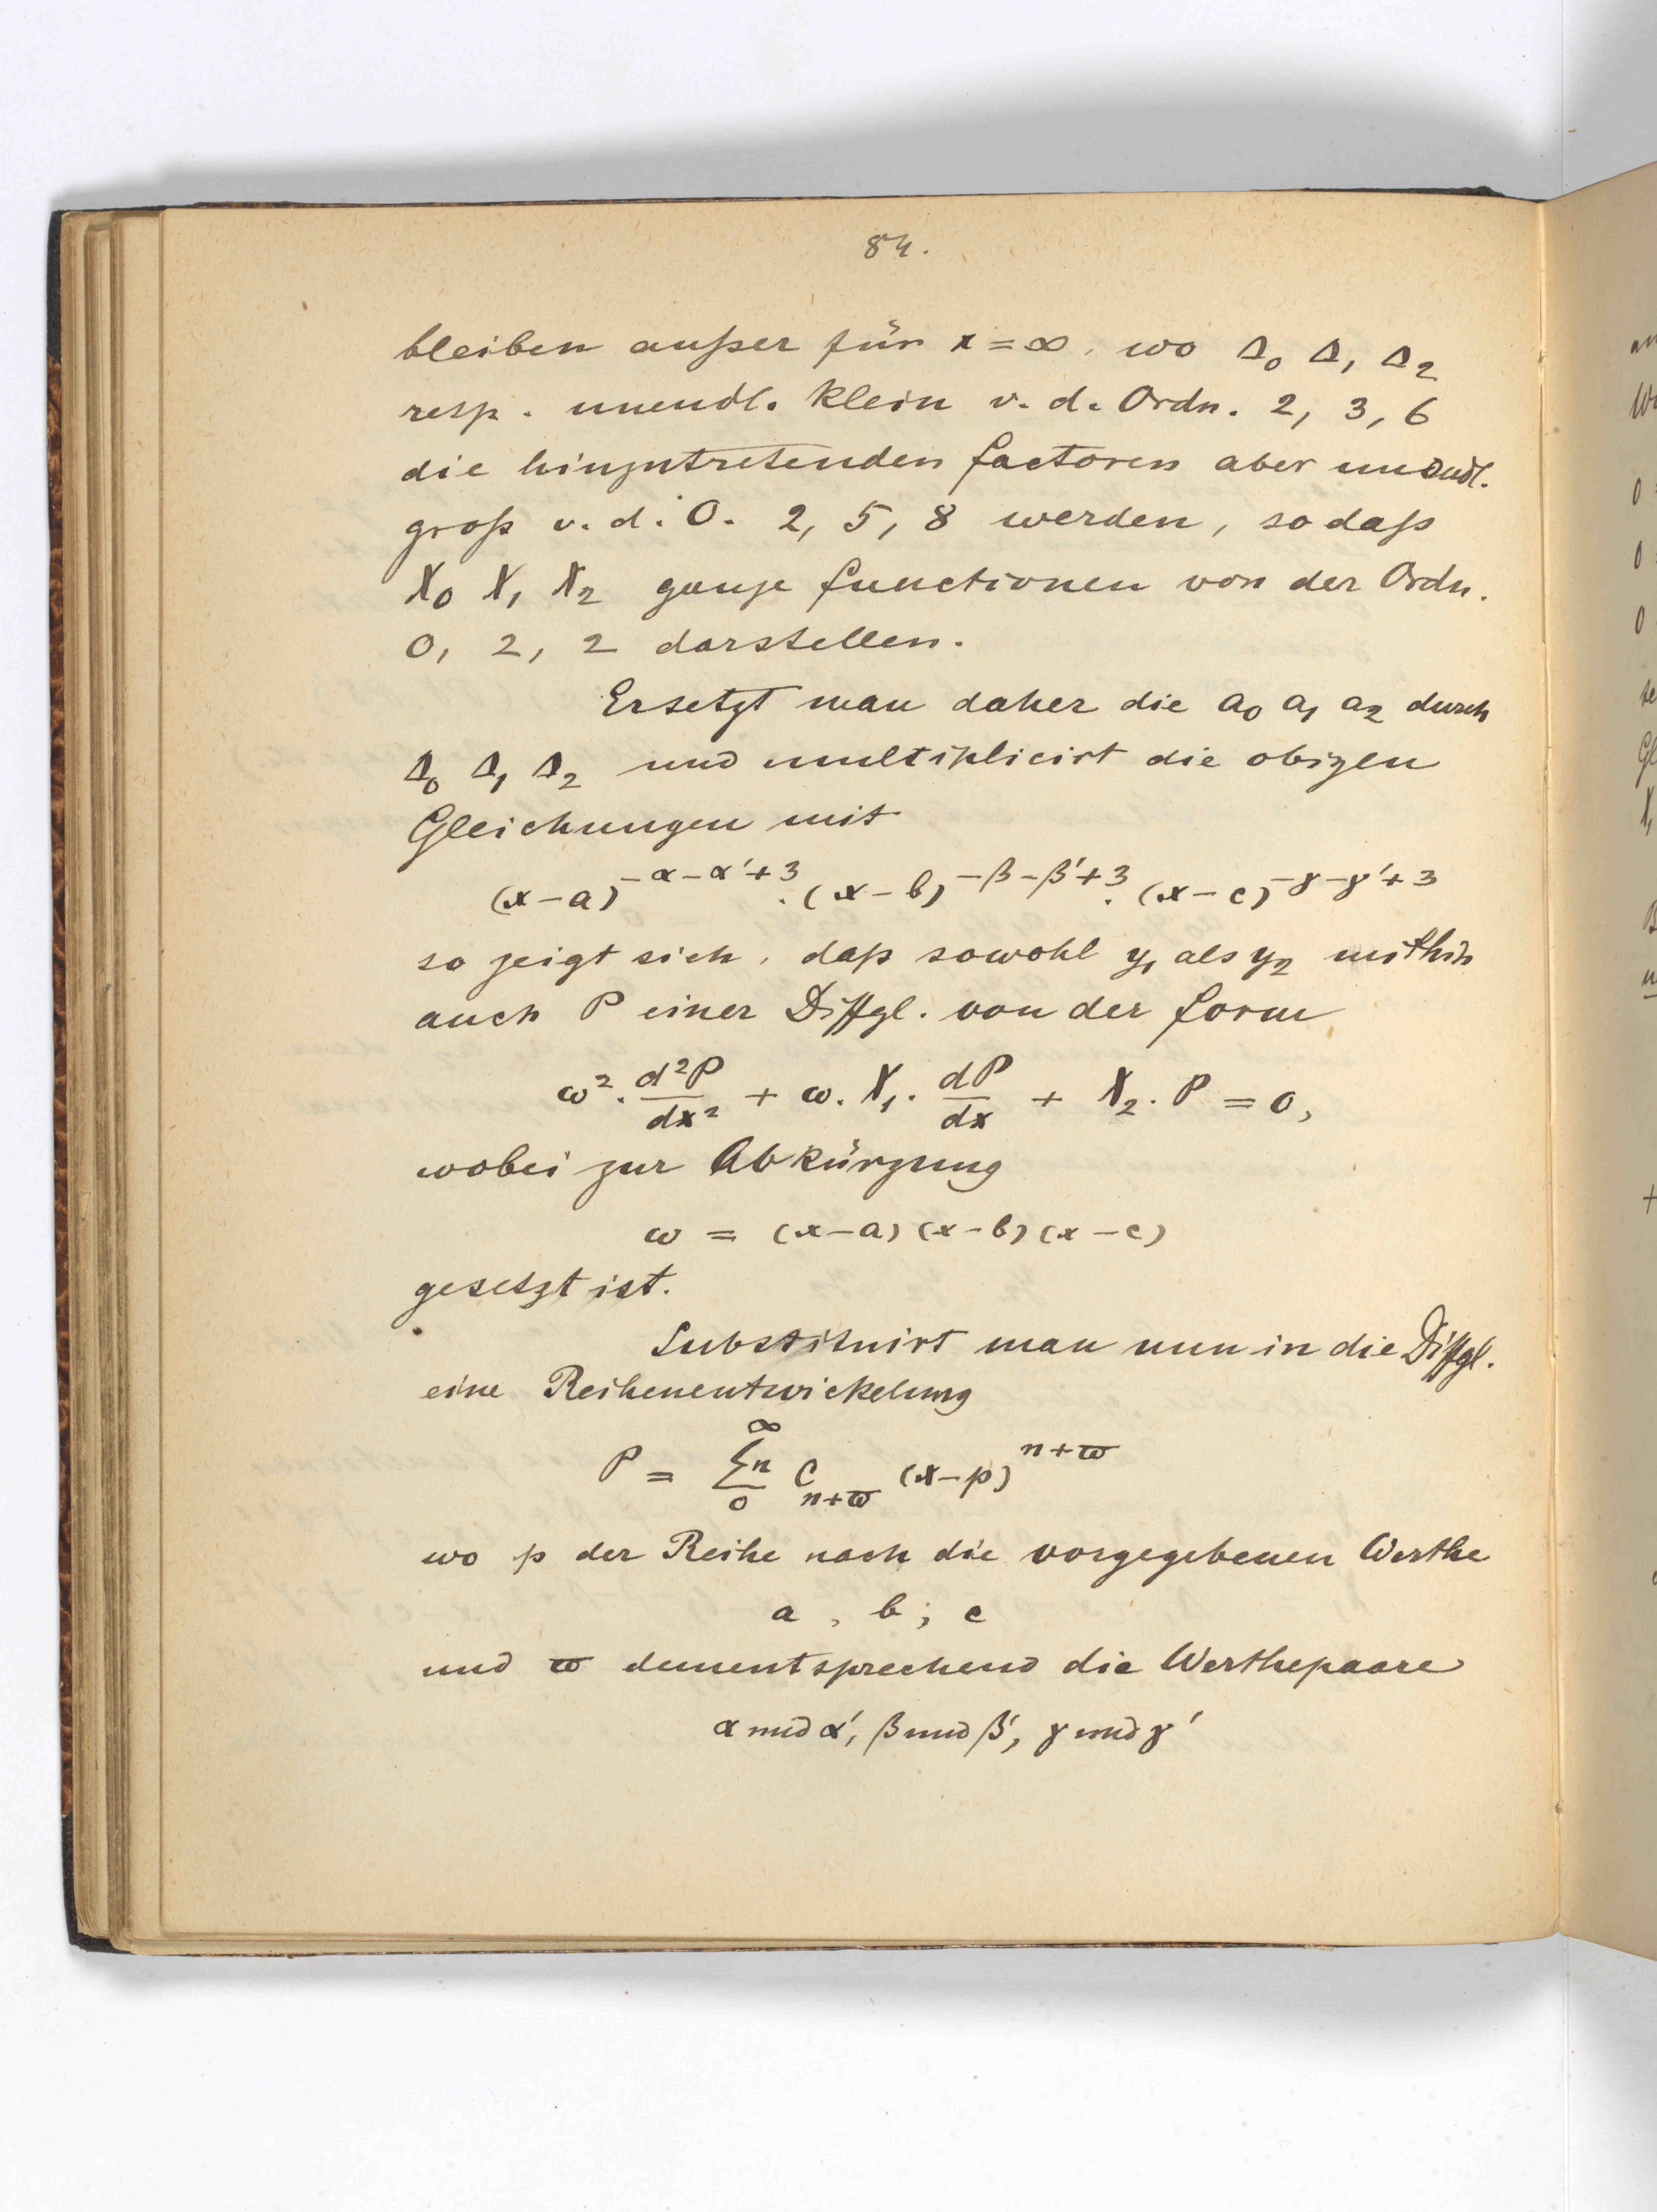 84.
bleiben außer für x = ∞, wo Δ₀ Δ₁ Δ₂
resp. unendl. klein v. d. Ordn. 2, 3, 6
die hinzutretenden Factoren aber unendl.
groß v. d. O. 2, 5, 8 werden, so daß
X₀ X₁ X₂ ganze Functionen von der Ordn.
0, 2, 2 darstellen.
Ersetzt man daher die a₀ a₁ a₂ durch
Δ₀ Δ₁ Δ₂ und multiplicirt die obigen
Gleichungen mit
(x-a)^{-α-α'+3} · (x-b)^{-β-β'+3} · (x-c)^{-γ-γ'+3}
so zeigt sich, daß sowohl y₁ als y₂ mithin
auch P einer Diffgl. von der Form
ω² · d²P/dx² + ω · X₁ · dP/dx + X₂ · P = 0,
wobei zur Abkürzung
ω = (x-a) (x-b) (x-c)
gesetzt ist.
Substituirt man nun in die Diffgl.
eine Reihenentwickelung
P = Σₙ_0^∞ C_{n+ϖ} (x-p)^{n+ϖ}
wo p der Reihe nach die vorgegebenen Werthe
a, b; c
und ϖ dementsprechend die Werthepaare
α und α', β und β', γ und γ'